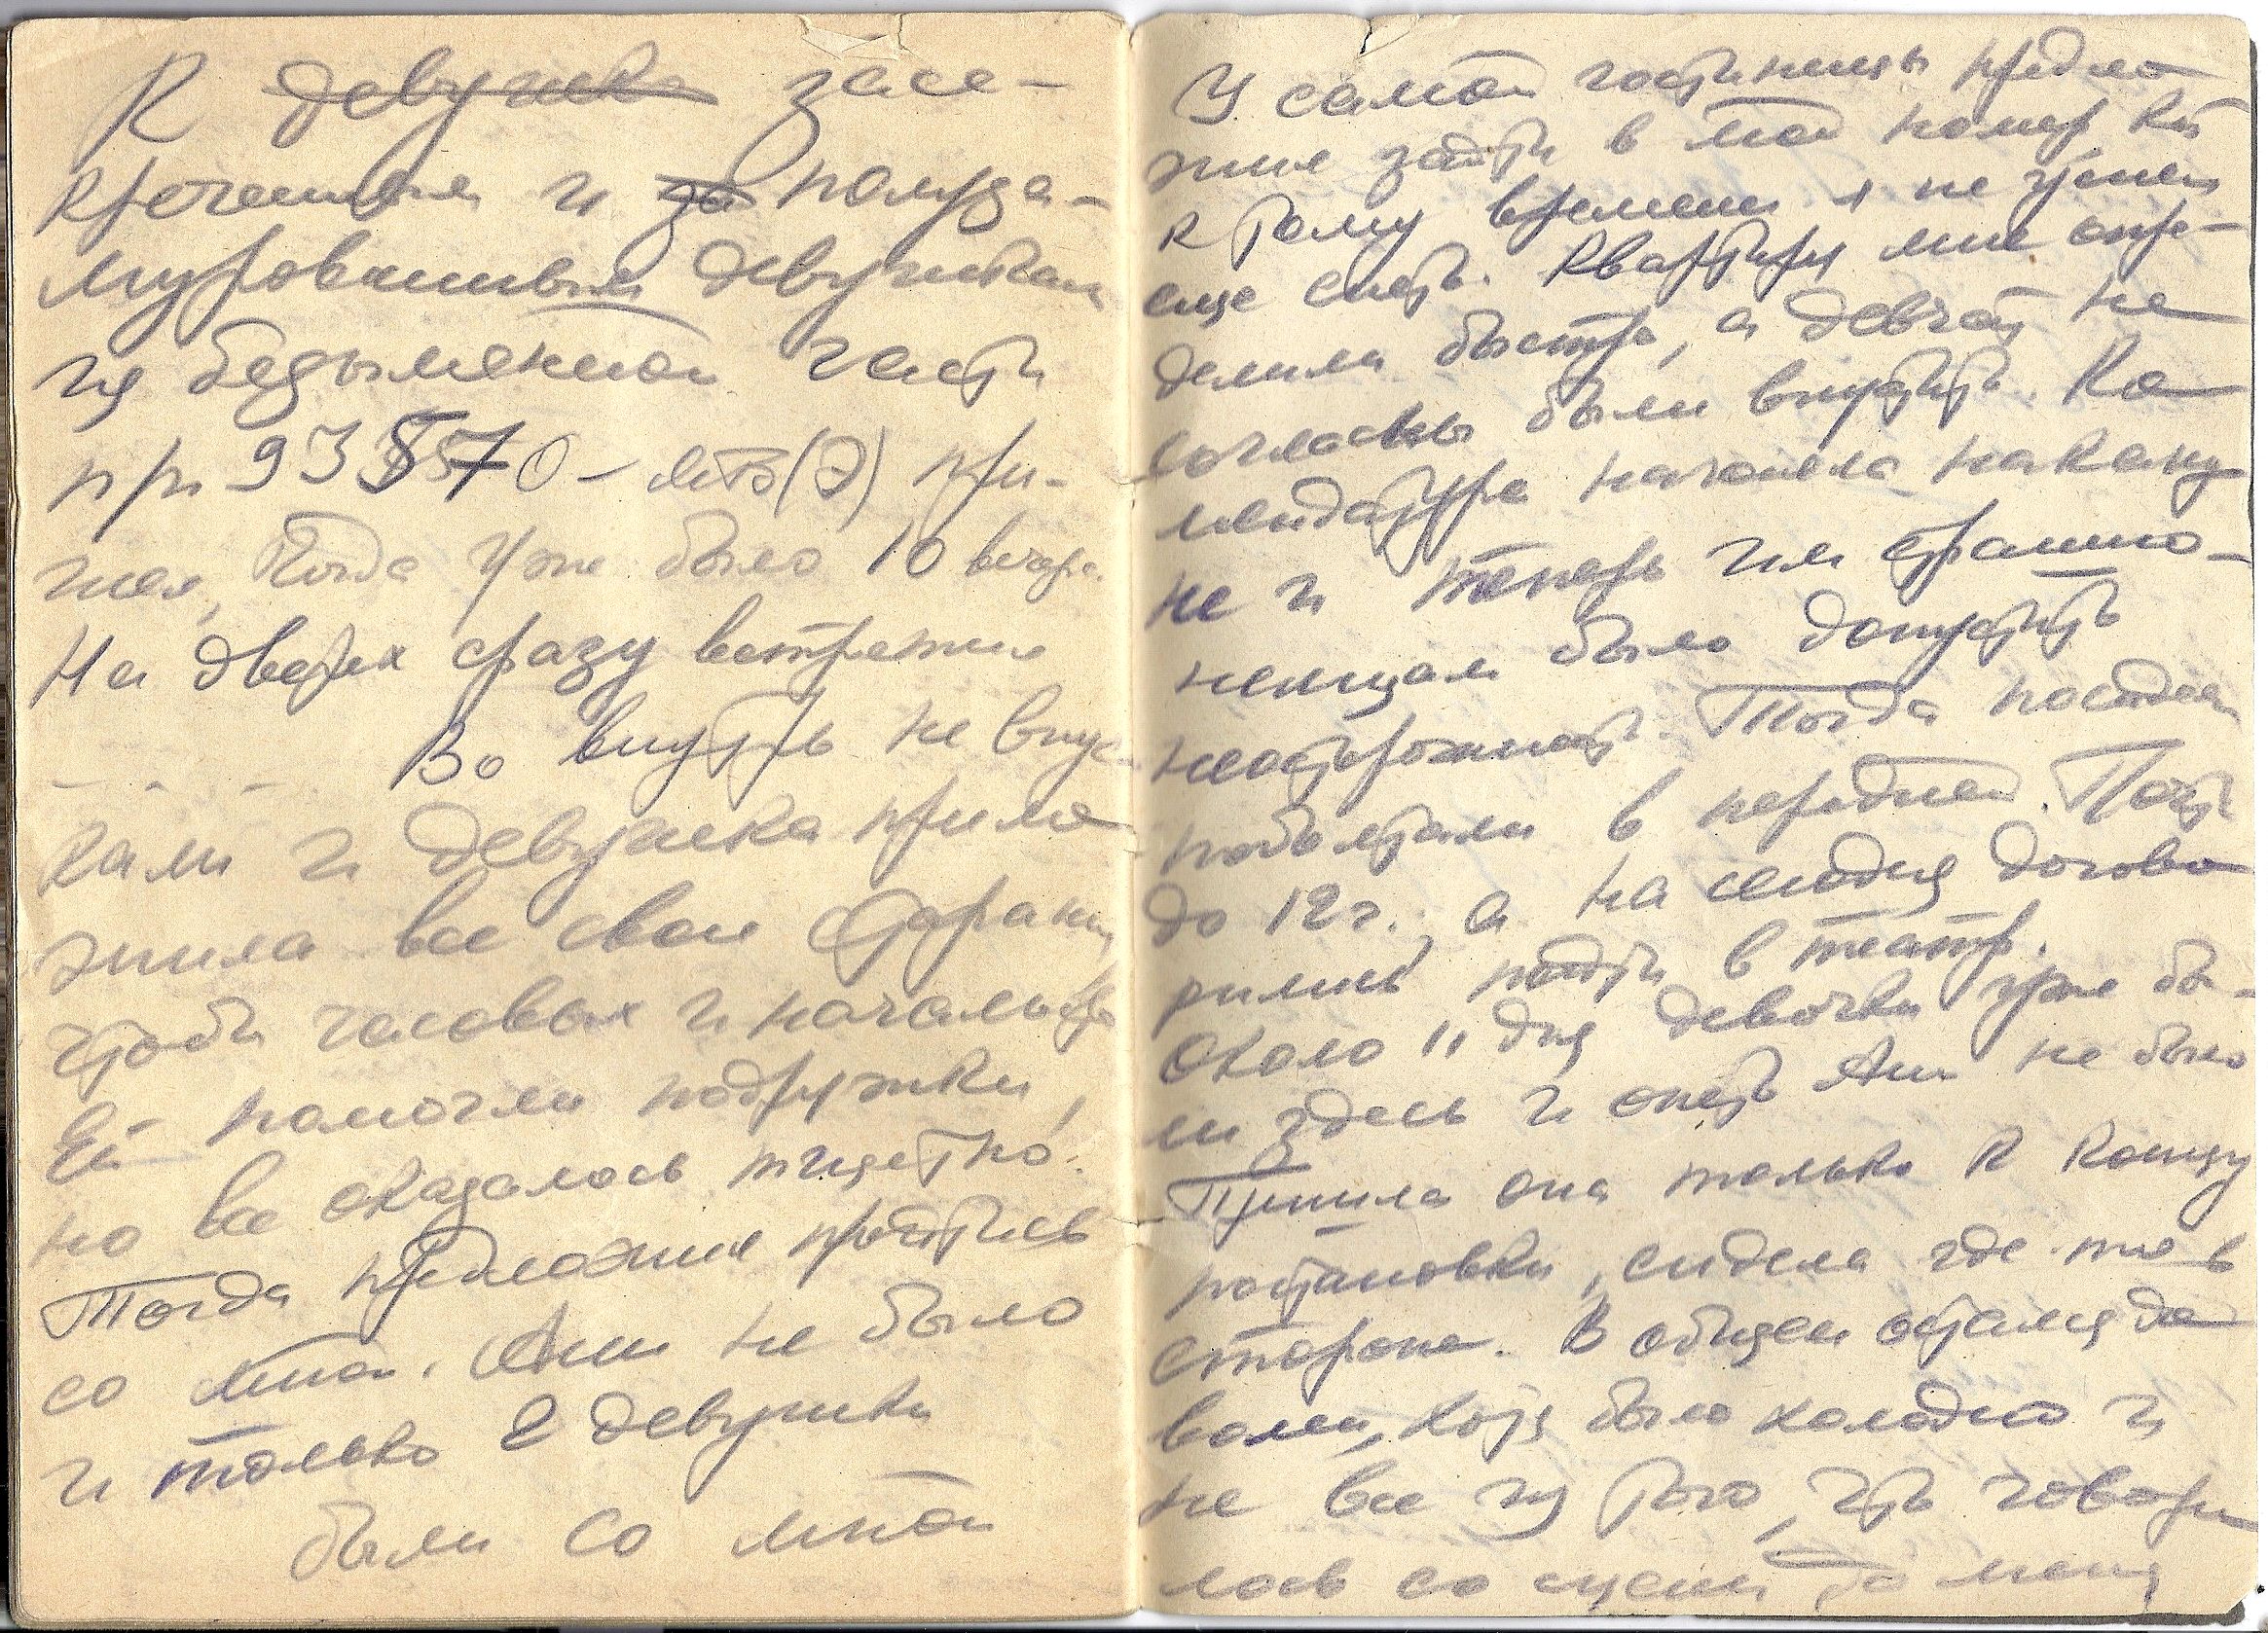 К девушка засе-
креченным и за полуза-
мурованным девушкам
из безымянной части
пр 93570-литв(Э) при-
шел, когда уже было 10 вечера.
На дверях сразу встретил
Во внутрь не впус-
кали и девушка прило
жила все свои старания
чтобы часовых и начальство
Ей помогли подружки,
но все оказалось тщетно.
Тогда предложил пройтись
со мной. Ани не было
и только 2 девушки
были со мной
У самой гостиницы предло
жил зайти в мой номер кот
к тому времени я не успел
еще снять. Квартиру мне опре-
делили быстро, а девчат не
согласны были впустить. Ко
мендатура начинала накану
не и теперь им страшно-
ненщам было допустить
неосторожность. Тогда посидели
поболтали в передней. Почти
до 12 ч., а на сегодня догово
рились пойти в театр.
Около 11 дня девочки уже бы-
ли здесь и опять Ани не было
Пришла она только к концу
постановки, сидела где-то в
стороне. В общем остался до
волен, хотя было холодно и
не все из того, что говори
лось со сцены до меня